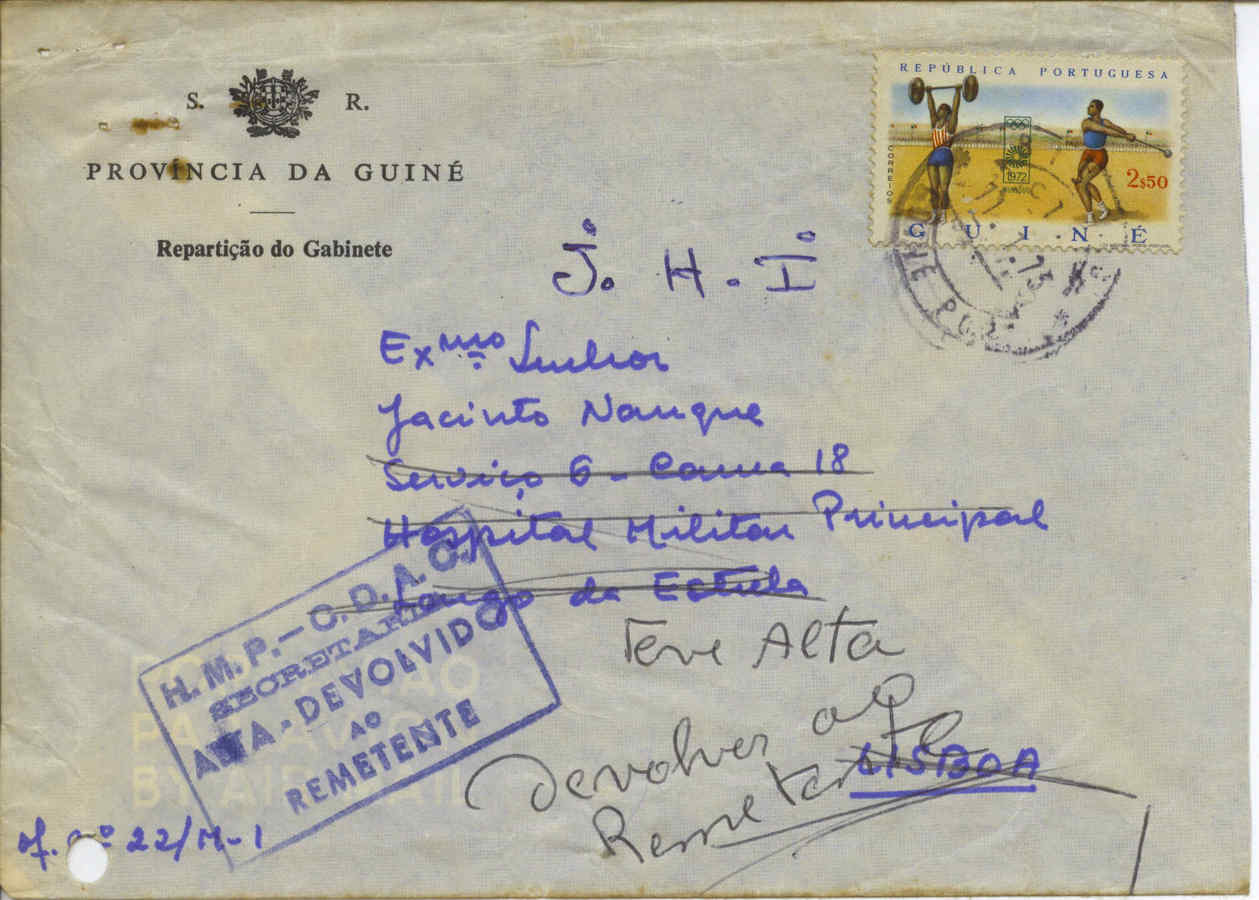 S. R.
PROVÍNCIA DA GUINÉ
Repartição do Gabinete
REPÚBLICA PORTUGUESA
CORREIOS
1972
2$50
GUINÉ
J. H. I
Exmo. Senhor
Jacinto Nanque
Serviço 6 - Cama 18
Hospital Militar Principal
Largo da Estrela
LISBOA
Teve Alta
Devolver ao
Remetente
H. M. P. - C. D. A. C.
SECRETARIA
ALTA - DEVOLVIDO
AO
REMETENTE
BY AIR MAIL
of. nº 22/M-1